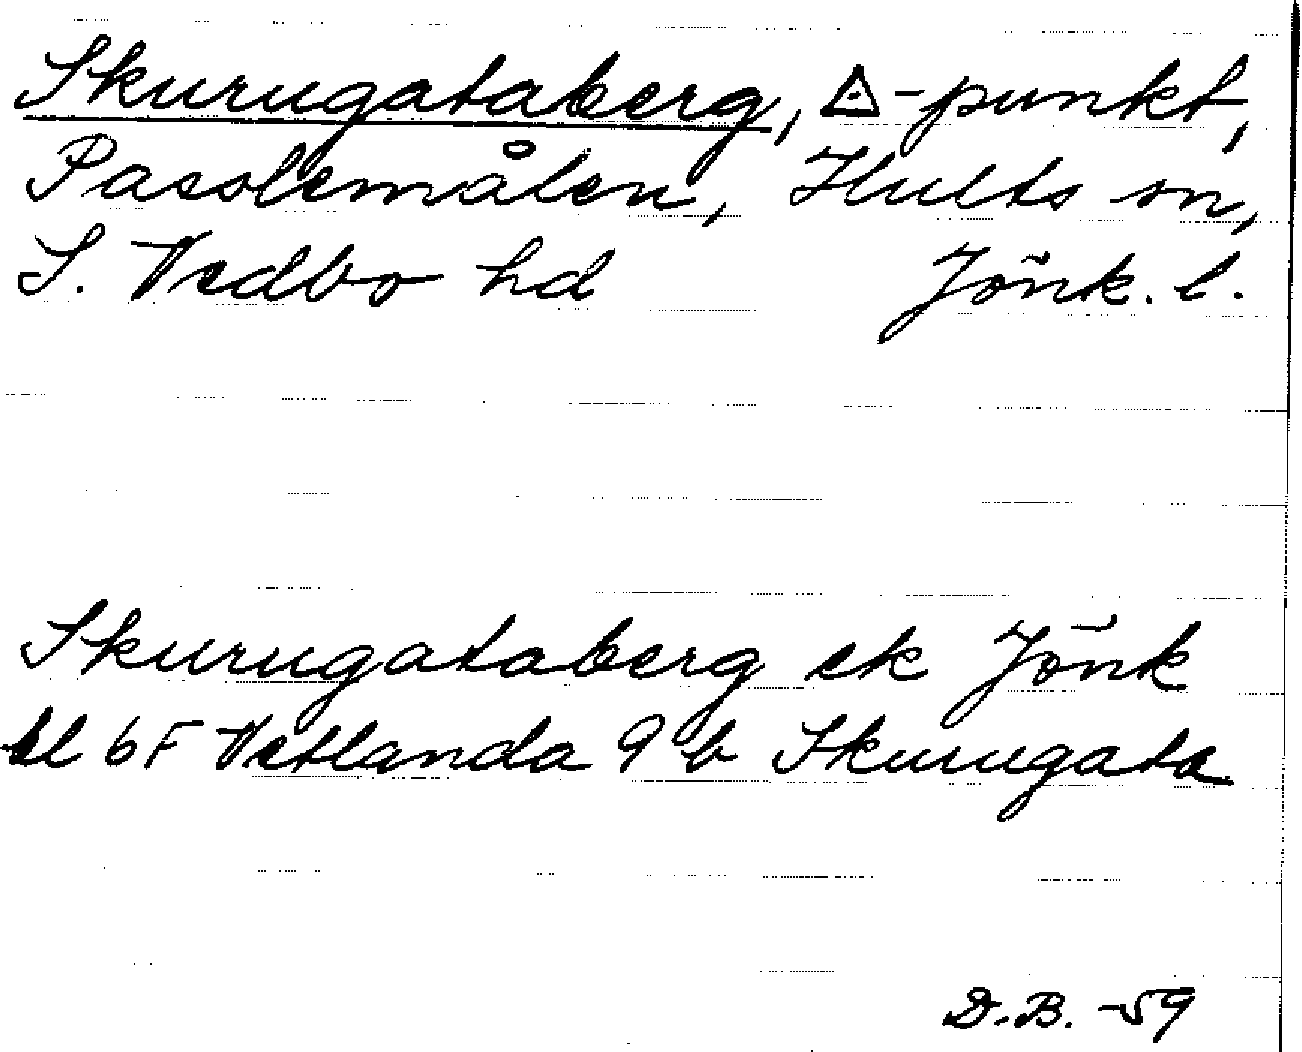 Skurugataberg, △-punkt,
Passlemålen, Hults sn,
S. Vedbo hd Jönk. l.
Skurugataberg ek Jönk
bl 6F Vetlanda 9 b Skurugata
D.B. -59